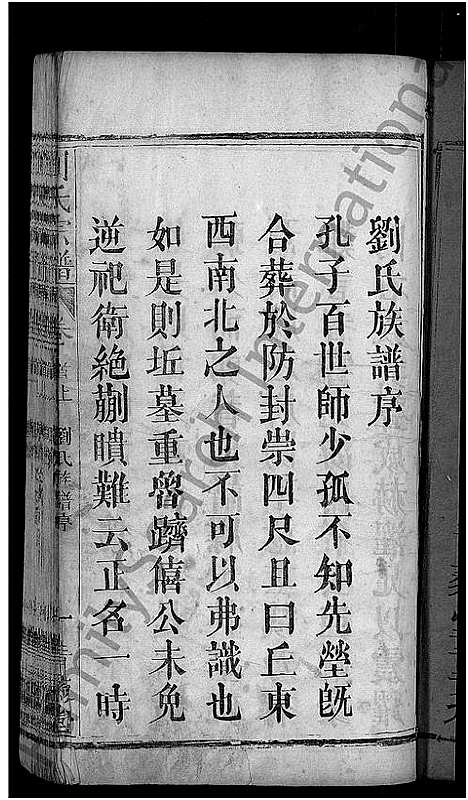 劉氏族譜序
孔子百世師少孤不知先塋旣
合葬於防封崇四尺且曰丘東
西南北之人也不可以弗識也
如是則坵墓重曾躋僖公未免
逆祀衛絶蒯聵難云正名一時
氏宗譜
劉氏族譜序